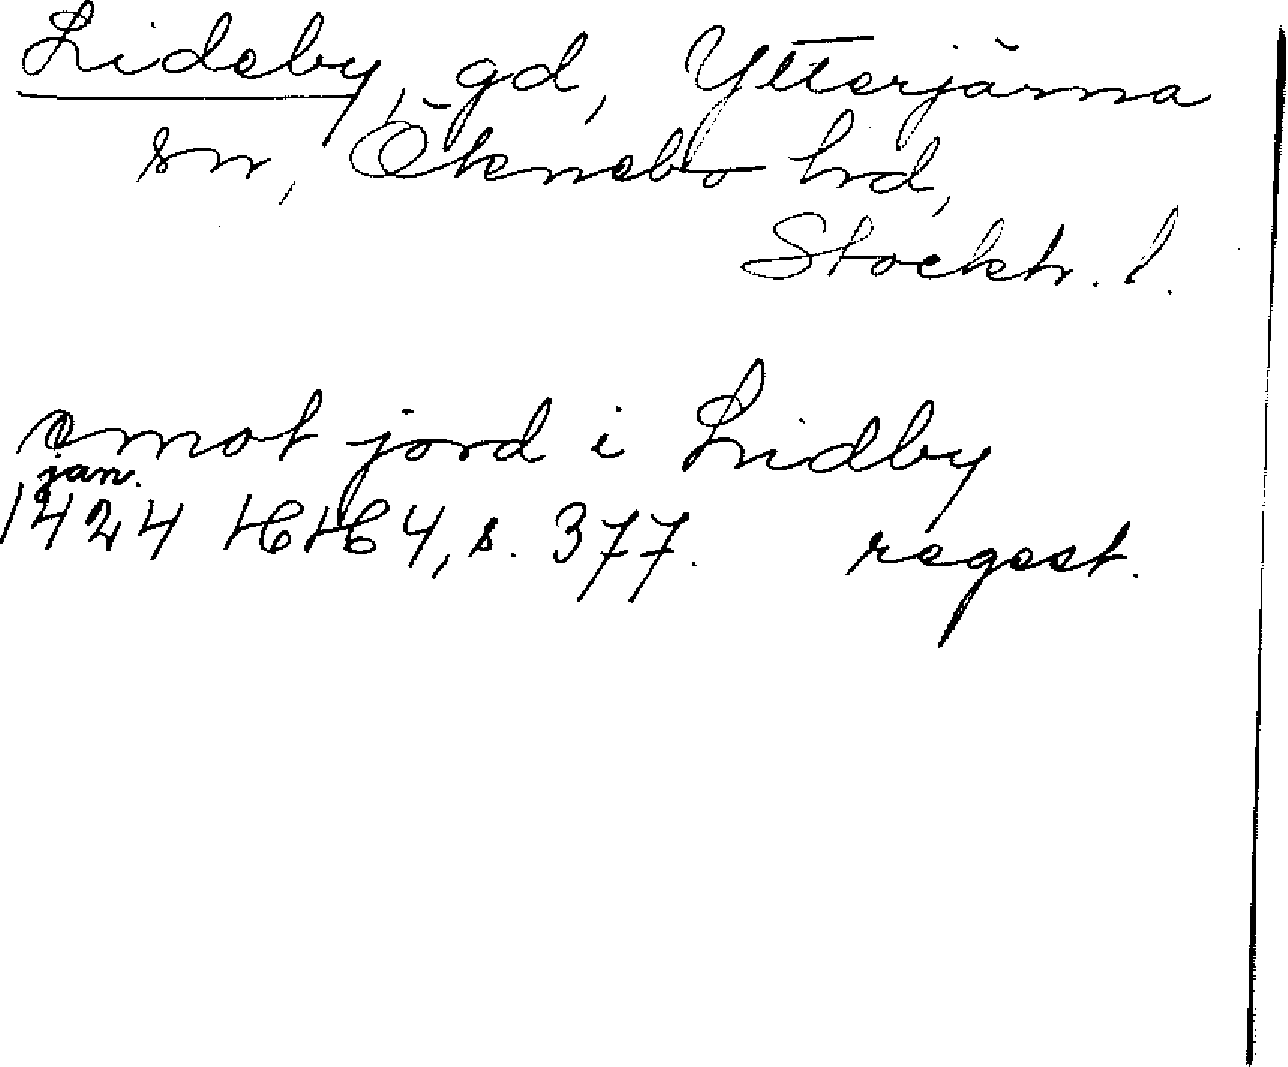 Lideby, gd, Ytterjärna
sn, Öknebo hrd,
Stockh. l.
emot jord i Lidby
jan.
1424 HH 4, s. 377. regest.